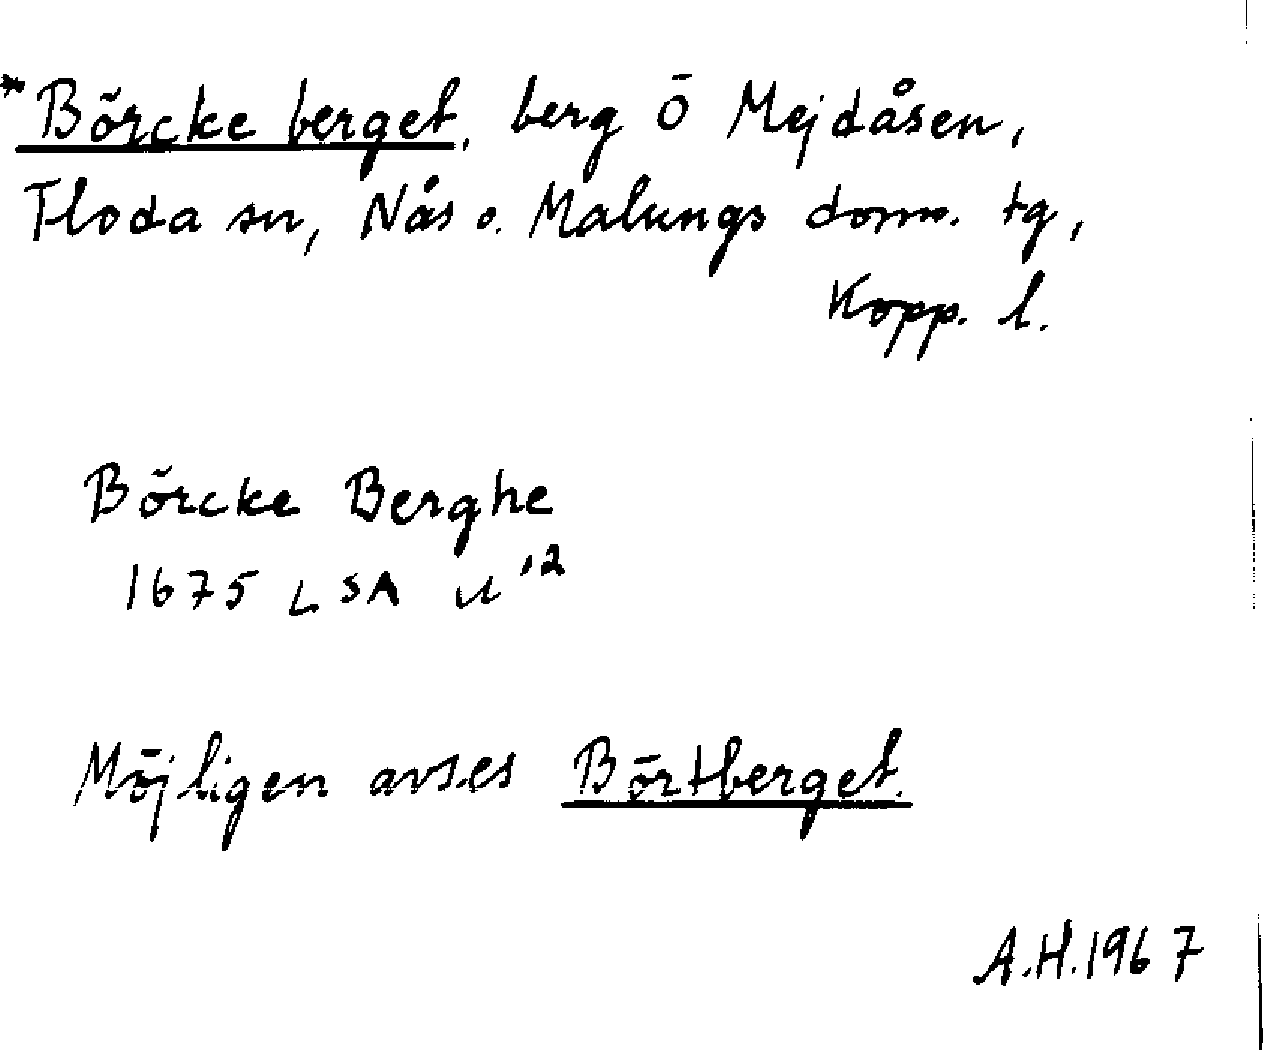 *Börcke berget, berg Ö Mejdåsen,
Floda sn, Nås o. Malungs doms. tg,
Kopp. l.
Börcke Berghe
1675 LSA U 12
Möjligen avses Börtberget.
A.H. 1967